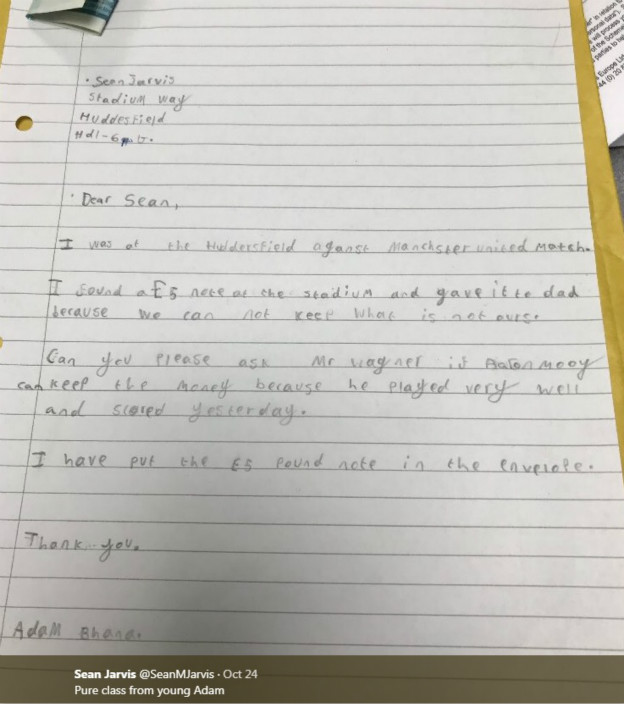 · Sean Jarvis
Stadium way
Huddesfield
Hd1-6
· Dear Sean,
I was at the Huddersfield aganst Manchster united Match.
I found a £5 note at the stadium and gave it to dad
because we can not keep what is not ours.
Can you please ask Mr wagner if Aaron mooy
can keep the money because he played very well
and scored yesterday.
I have put the £5 pound note in the envelope.
Thank you.
Adam Bhana.
Sean Jarvis @SeanMJarvis · Oct 24
Pure class from young Adam